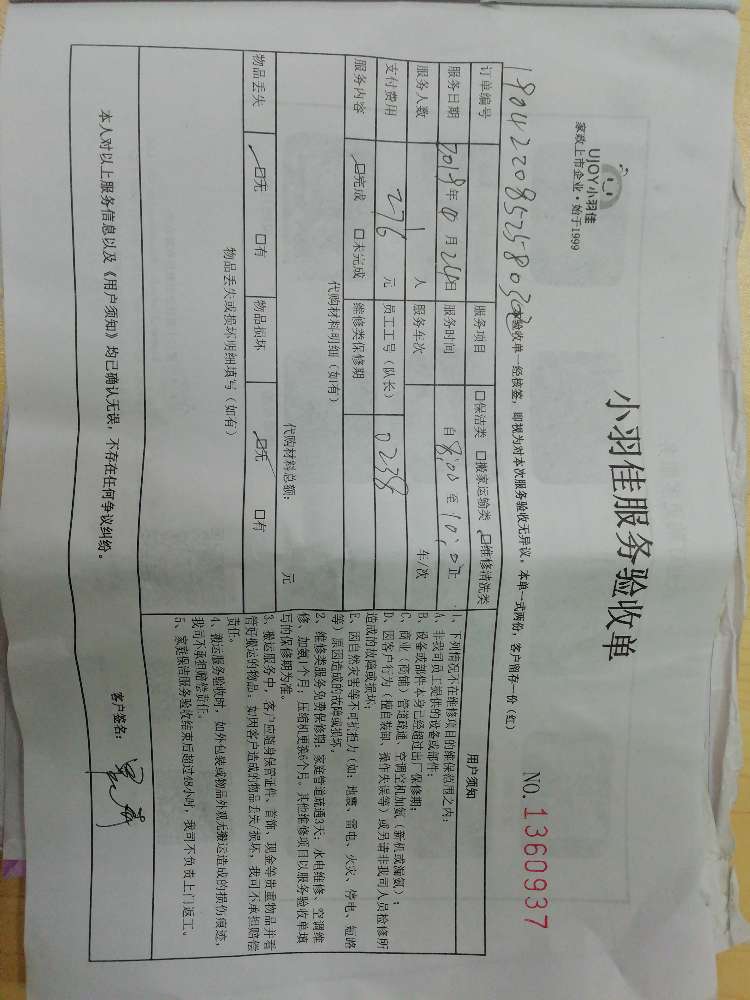 UJOY小羽佳
家政上市企业·始于1999
小羽佳服务验收单
NO. 1360937
本验收单一经核签，即视为对本次服务验收无异议，本单一式两份，客户留存一份（红）
订单编号 服务项目 口保洁类 口搬家运输类 口维修清洗类
服务日期 2018年4月24日 服务时间 自8:00至10:0止
服务人数 1人 服务车次 车/次
支付费用 276元 员工工号（队长） 0258
服务内容 口完成 口未完成 维修类保修期
代购材料明细（如有）
代购材料总额： 元
物品丢失 口无 口有 物品损坏 口无 口有
物品丢失或损坏明细填写（如有）
用户须知
1、下列情况不在维修项目的维保范围之内：
A、非我司员工提供的设备或部件；
B、设备或部件本身已经超过出厂保修期；
C、商业（商铺）管道疏通、空调空机加氨（新机或漏氨）；
D、因客户行为（擅自装卸、操作失误等）或另请非我司人员检修所
造成的故障或损坏；
E、因自然灾害等不可抗拒力（如：地震、雷电、火灾、停电、短路
等）原因造成的故障或损坏。
2、维修类服务免费保修期：家庭管道疏通3天；水电维修、空调维
修、加氨1个月；压缩机更换6个月。其他维修项目以服务验收单填
写的保修期为准。
3、搬运服务中，客户应随身保管证件、首饰、现金等贵重物品并看
管好搬运的物品，如因客户造成的物品丢失/损坏，我司不承担赔偿
责任。
4、搬运服务验收时，如外包装或物品外观无搬运造成的损伤痕迹，
我司不承担赔偿责任。
5、家庭保洁服务验收结束后超过48小时，我司不负责上门返工。
本人对以上服务信息以及《用户须知》均已确认无误，不存在任何争议纠纷。
客户签名：